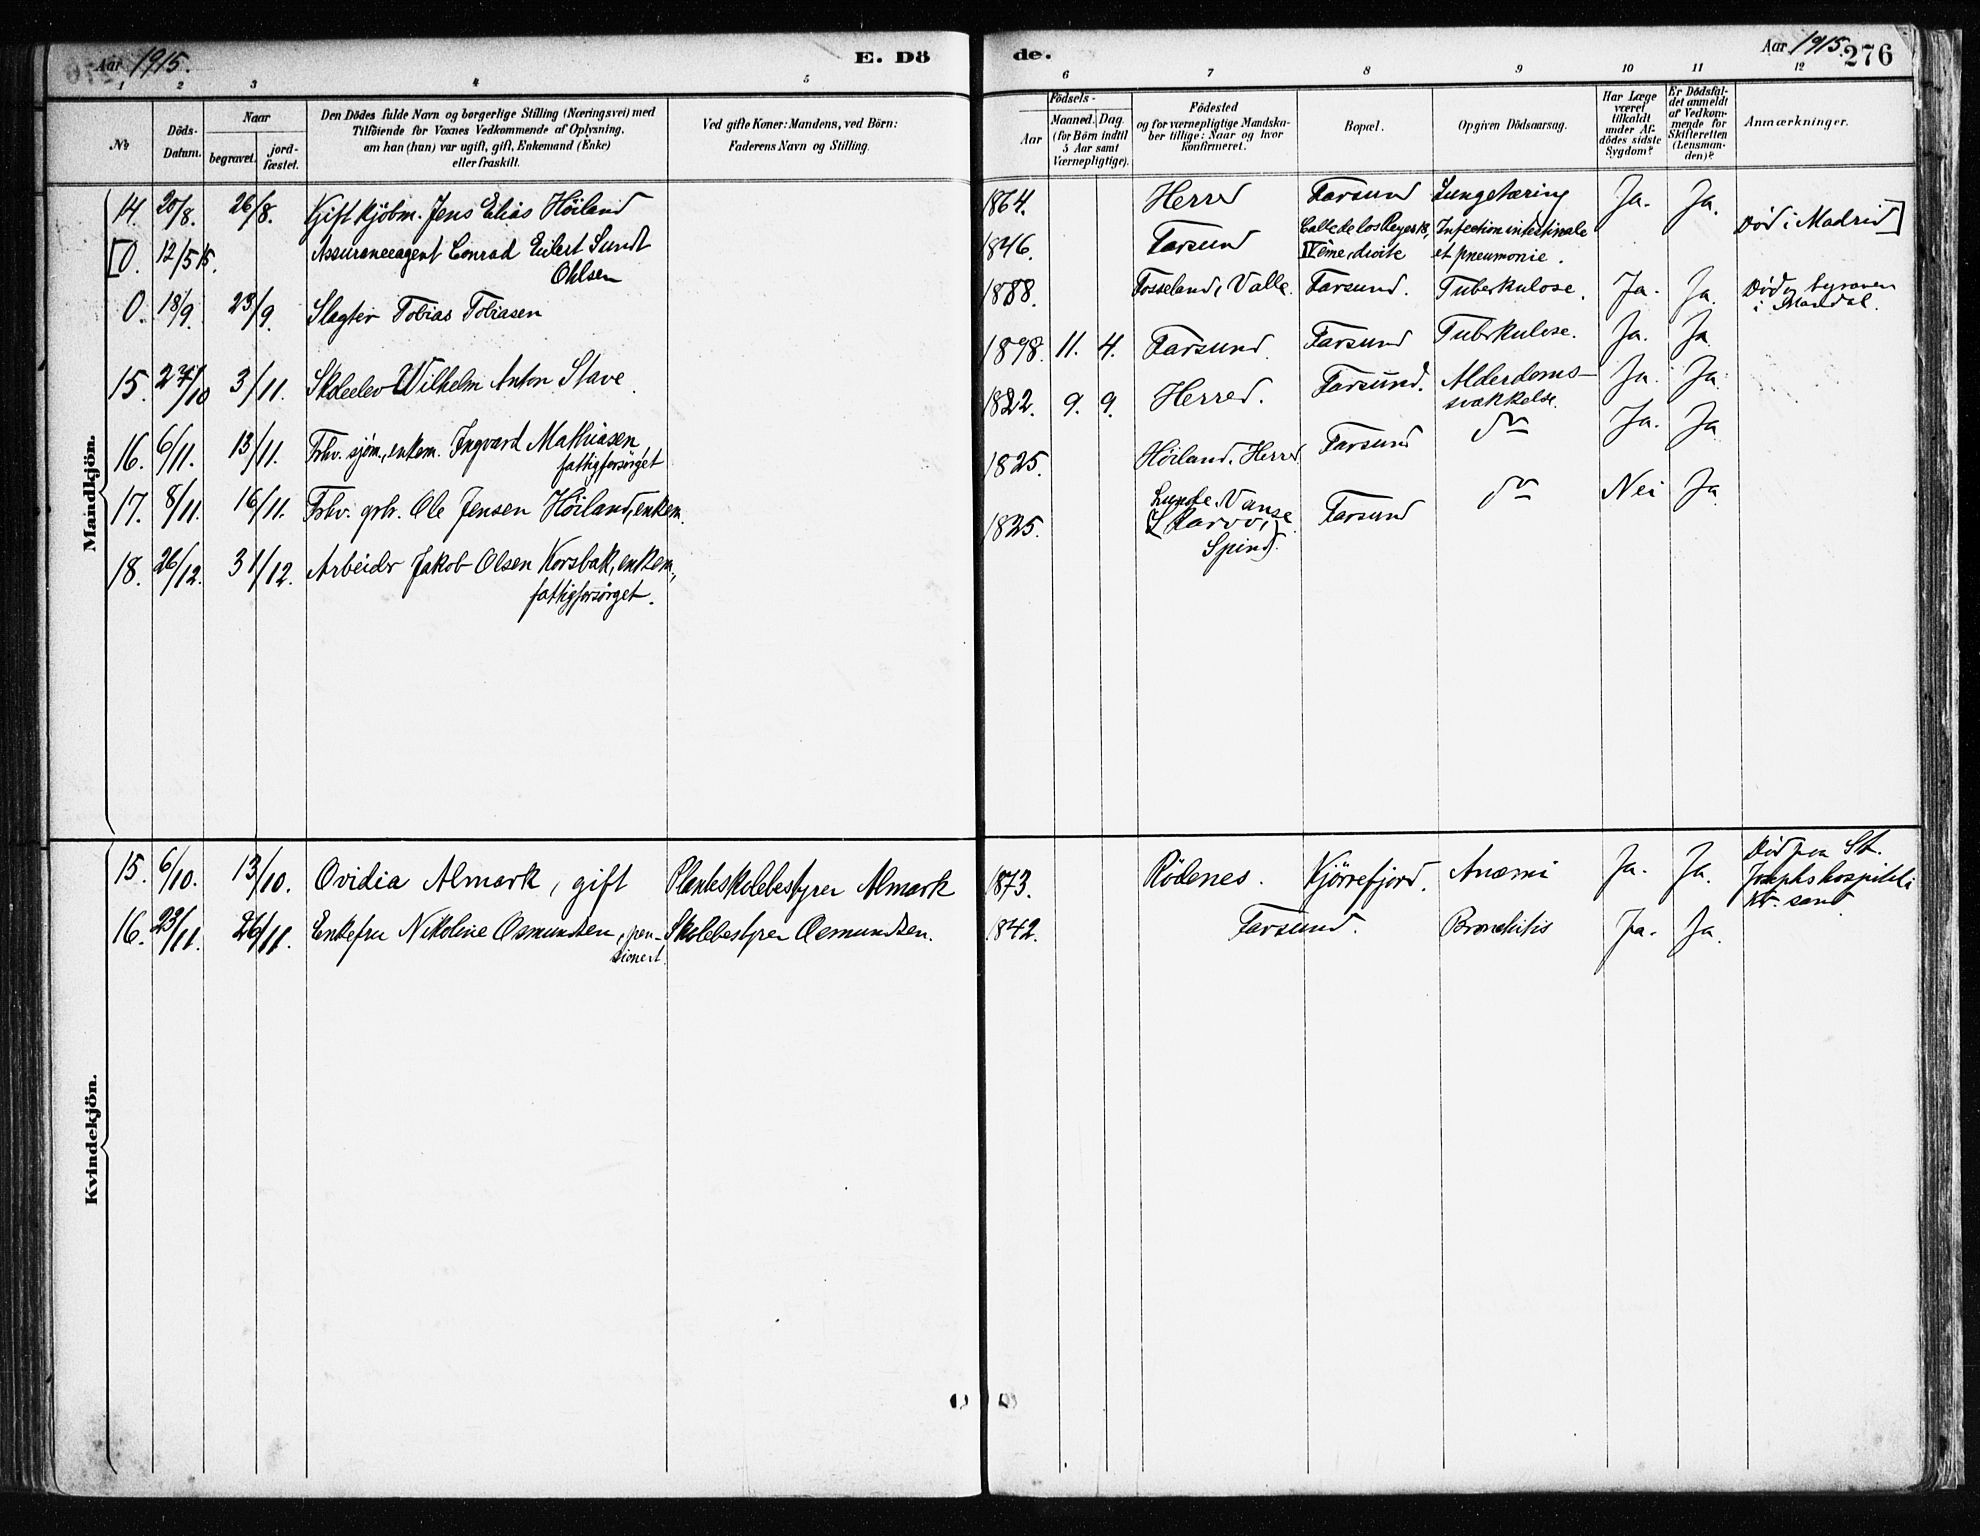 Aar 1915.
E. Dö
1 2 3 4 5
№
Döds-
Datum.
Naar
begravet.
jord-
fæstet.
Den Dödes fulde Navn og borgerlige Stilling (Næringsvei) med
Tilföiende for Voxnes Vedkommende af Oplysning,
om han (hun) var ugift, gift, Enkemand (Enke)
eller fraskilt.
Ved gifte Koner: Mandens, ved Börn:
Faderens Navn og Stilling.
Mandkjön.
14. 20/8. 26/8. Gift kjöbm. Jens Elias Höiland
[0. 12/5 15. Assuranceagent Conrad Eilert Sundt
Ohlsen
0. 18/9. 23/9. Slagter Tobias Tobiasen
15. 27/10 3/11. Skoleelev Wilhelm Anton Stave
16. 6/11. 13/11. Fhv. sjöm., enkem. Ingvard Mathiasen
fattigforsörget
17. 8/11. 16/11. Fhv. grb. Ole Jensen Höiland, enkem.
18. 26/12. 31/12. Arbeider Jakob Olsen Korsbak, enkem.,
fattigforsörget.
Kvindekjön.
15. 6/10. 13/10. Ovidia Almark, gift Planteskolebestyrer Almark
16. 23/11. 26/11. Enkefru Nikoline Osmundsen, pen- Skolebestyrer Osmundsen.
sionert.
de.
Aar 1915. 276
6 7 8 9 10 11 12
Födsels-
Aar
Maaned. Dag.
(for Börn indtil
5 Aar samt
Værnepligtige).
Födested
og for værnepligtige Mandska-
ber tillige: Naar og hvor
konfirmeret.
Bopæl.
Opgiven Dödsaarsag.
Har Læge
været
tilkaldt
under Af-
dödes sidste
Sygdom?
Er Dödsfal-
det anmeldt
af Vedkom-
mende for
Skifteretten
(Lensman-
den)?
Anmærkninger.
1864. Herred Farsund Lungetæring Ja. Ja.
1846. Farsund Calle de los Reyes 18, Infection intestinale Död i Madrid]
IVème, droite et pneumonie.
1888. Fosseland, Valle. Farsund. Tuberkulose. Ja. Ja. Död og begraven
i Mandal.
1898. 11. 4. Farsund. Farsund Tuberkulose. Ja. Ja.
1822. 9. 9. Herred. Farsund. Alderdoms- Ja. Ja.
svækkelse.
1825. Höiland, Herred Farsund do Ja. Ja
1825. Lunde, Vanse Farsund do Nei Ja
Spind.
1873. Rödenes. Kjörrefjord. Anæmi Ja. Ja. Död paa St.
Josephs hospital i
Kr.sand.
1842. Farsund. Bronchitis Ja. Ja.